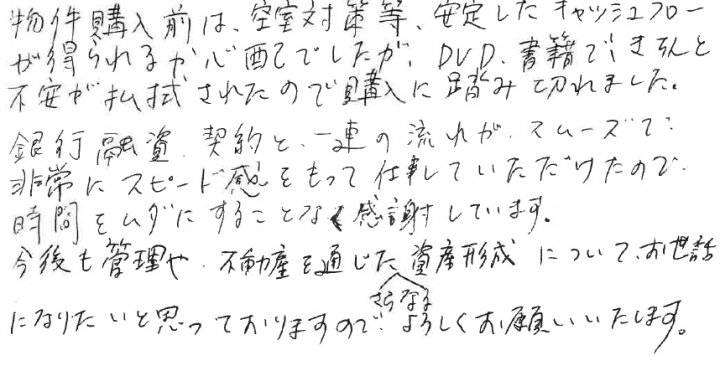 物件購入前は、空室対策等、安定したキャッシュフロー
が得られるか心配でしたが、DVD、書籍できちんと
不安が払拭されたので購入に踏み切れました。
銀行融資、契約と、一連の流れが、スムーズで、
非常にスピード感をもって仕事していただけたので、
時間をムダにすることなく感謝しています。
今後も管理や、不動産を通じた、資産形成について、お世話
さらなる
になりたいと思っておりますので、よろしくお願いいたします。